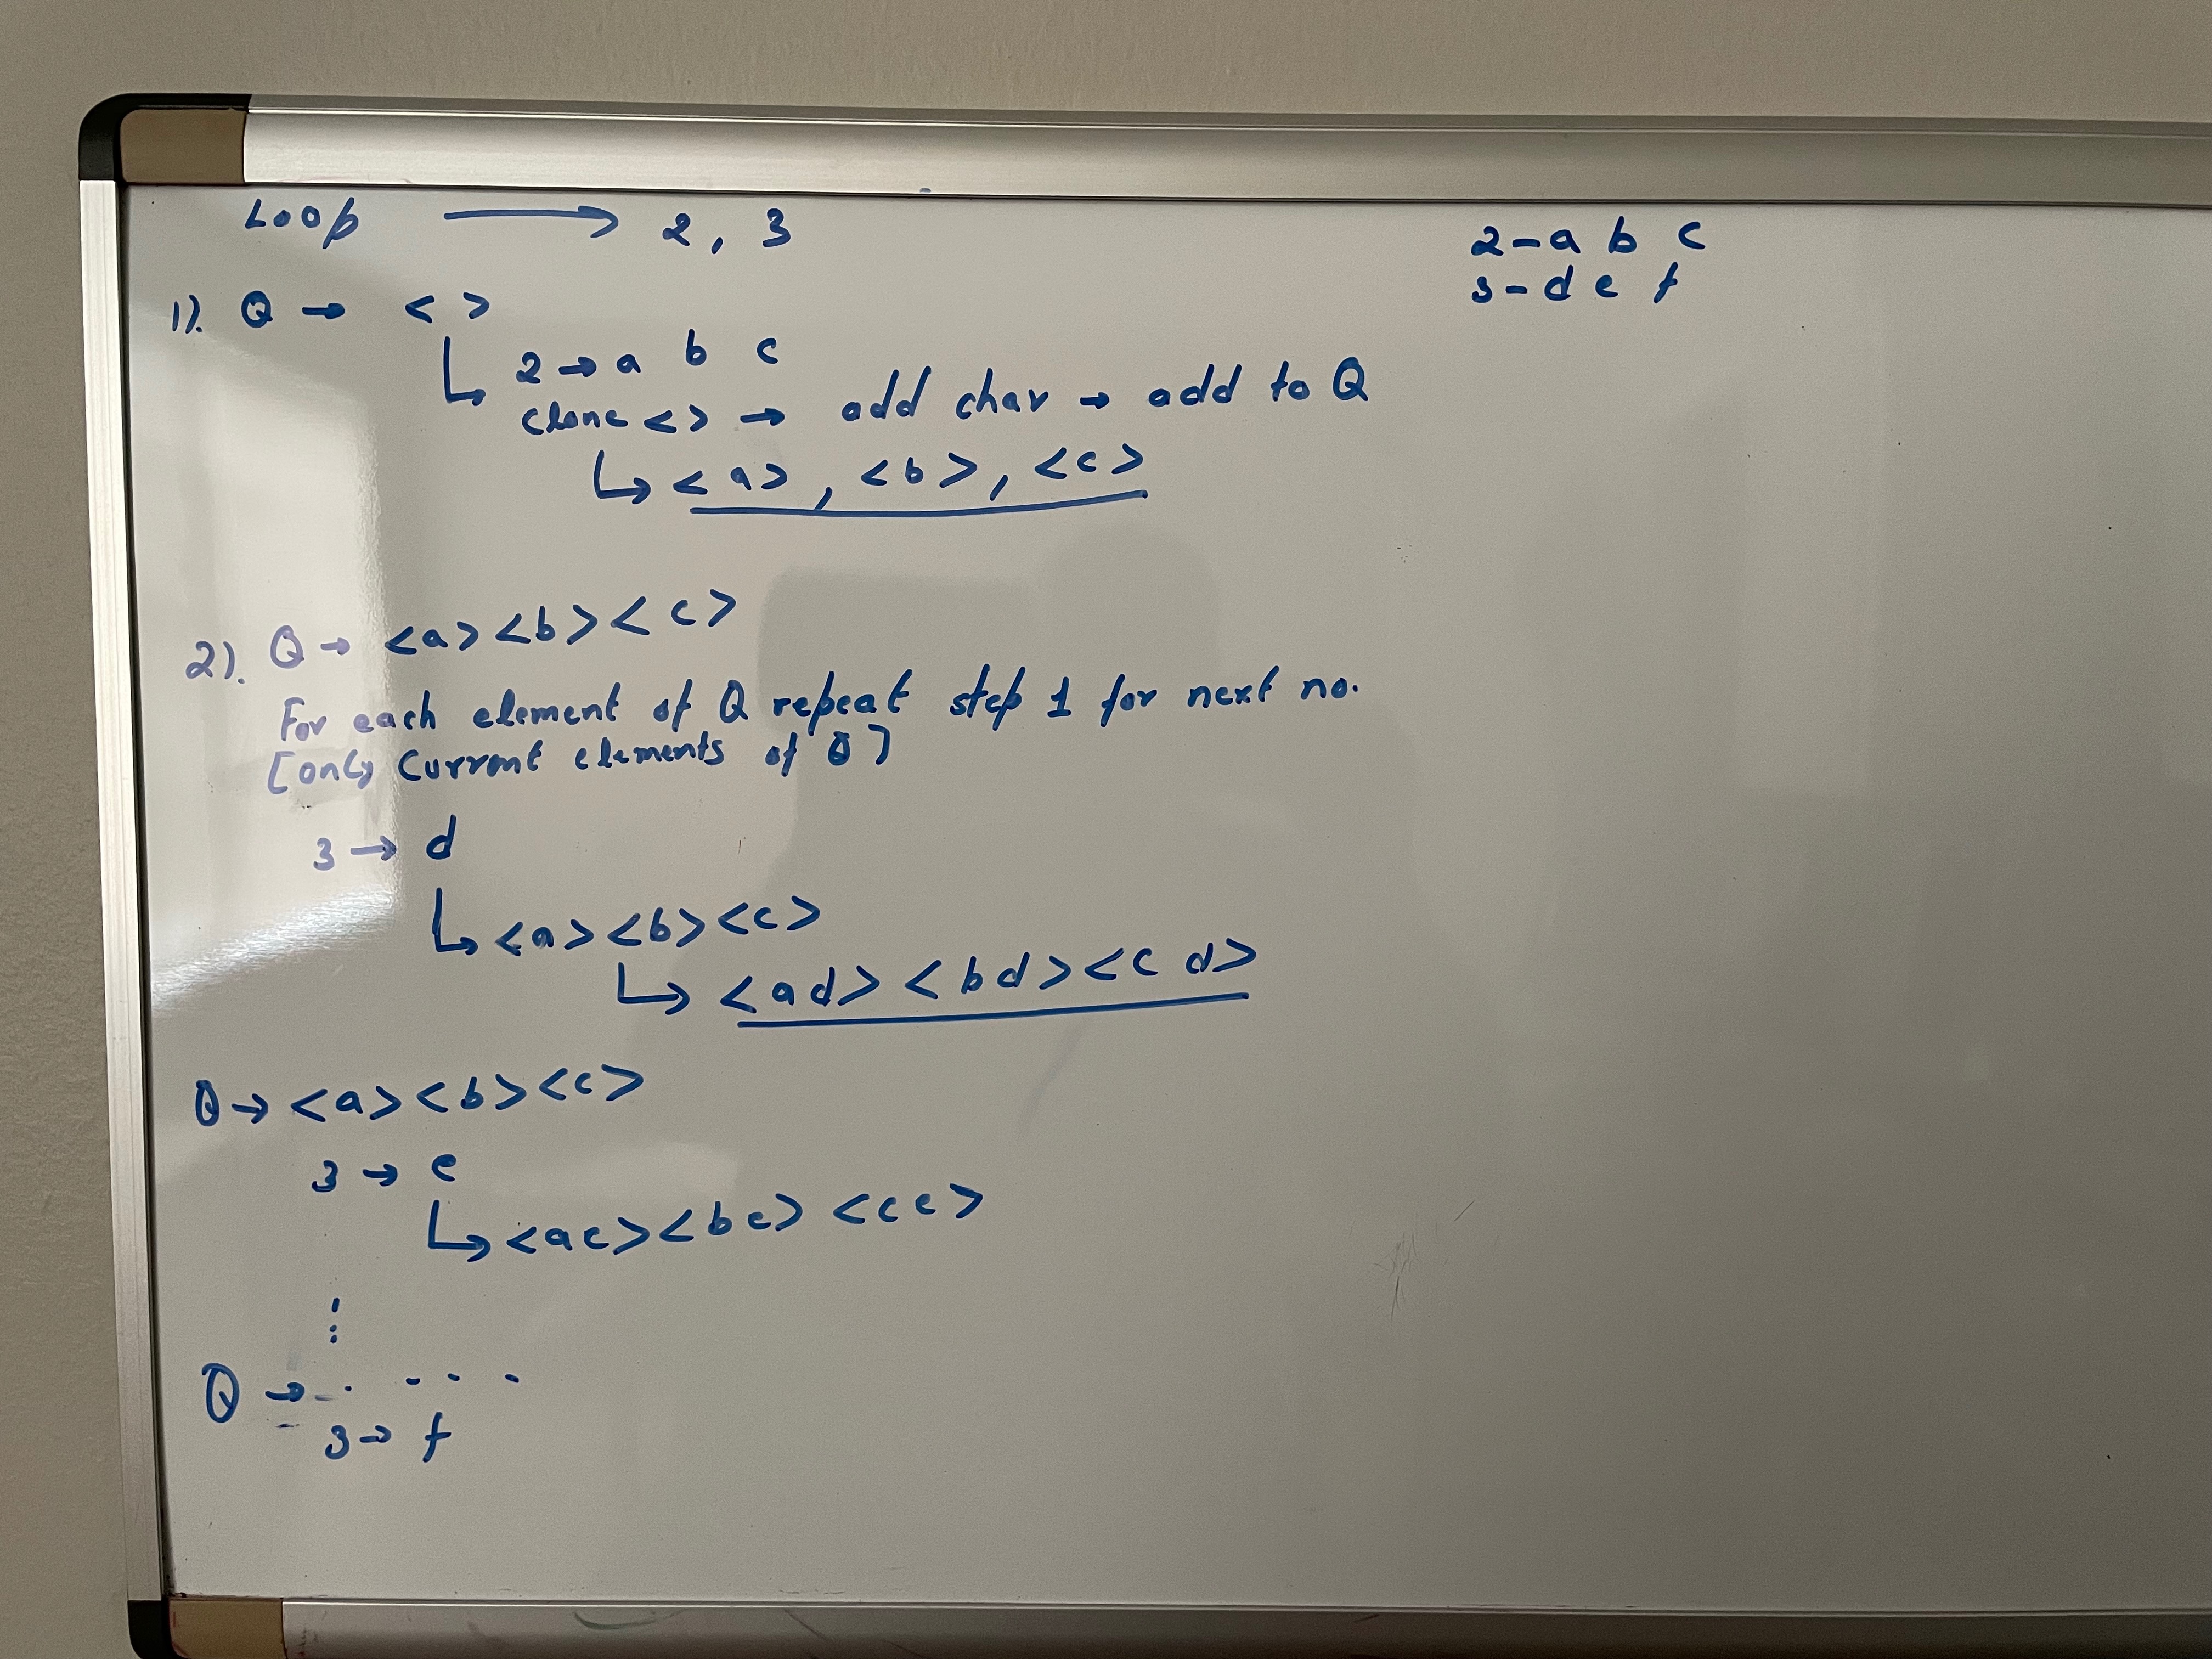 Loop → 2, 3
2 - a b c
3 - d e f
1). Q → < >
2 → a b c
clone < > → add char → add to Q
<a>, <b>, <c>
2). Q → <a> <b> <c>
For each element of Q repeat step 1 for next no.
[only current elements of Q]
3 → d
<a> <b> <c>
<ad> <bd> <cd>
Q → <a> <b> <c>
3 → e
<ae> <be> <ce>
⋮
Q → . . . . .
3 → f